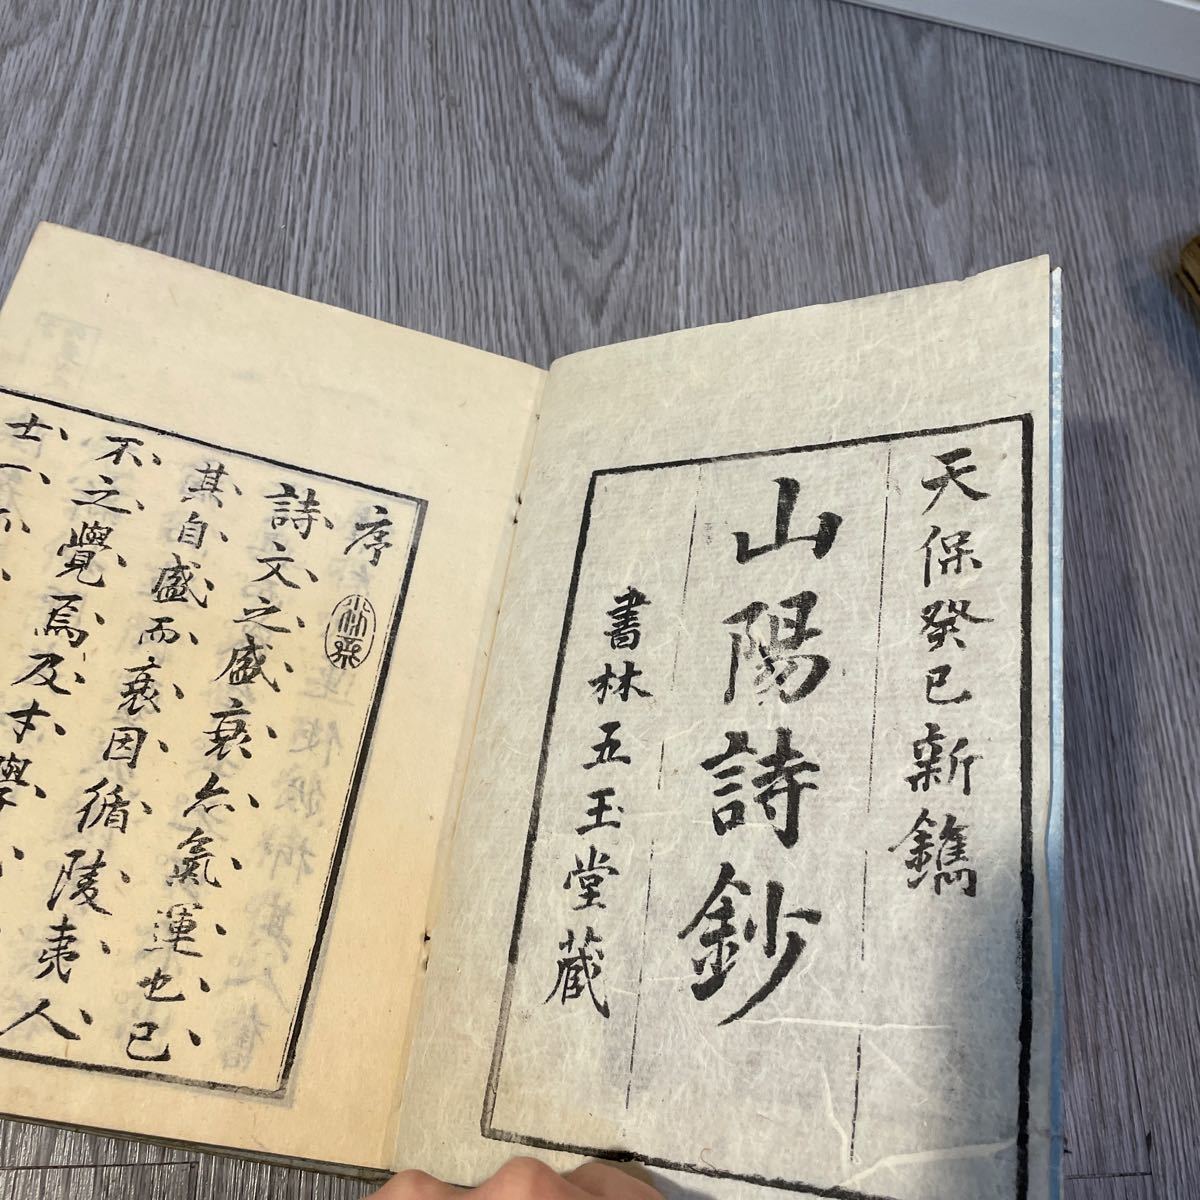 天保癸巳新鐫
山陽詩鈔
書林五玉堂蔵
序
詩文之盛衰亦氣運也已
其自盛而衰因循陵夷人
不之覺焉及才學
士一